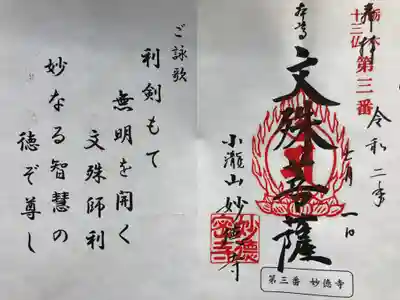 奉拝
栃木
十三仏
第三番
令和二年
七月一日
本尊
文殊菩薩
小瀧山 妙徳寺
第三番 妙徳寺
ご詠歌
利剣もて
無明を開く
文殊師利
妙なる智慧の
徳ぞ尊し